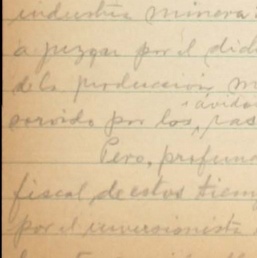 industria minera
a juzgar por el did
de la producción m
ávidos
sorvido por los, ras
Pero, profund
fiscal de estos tiemp
por el inversionista